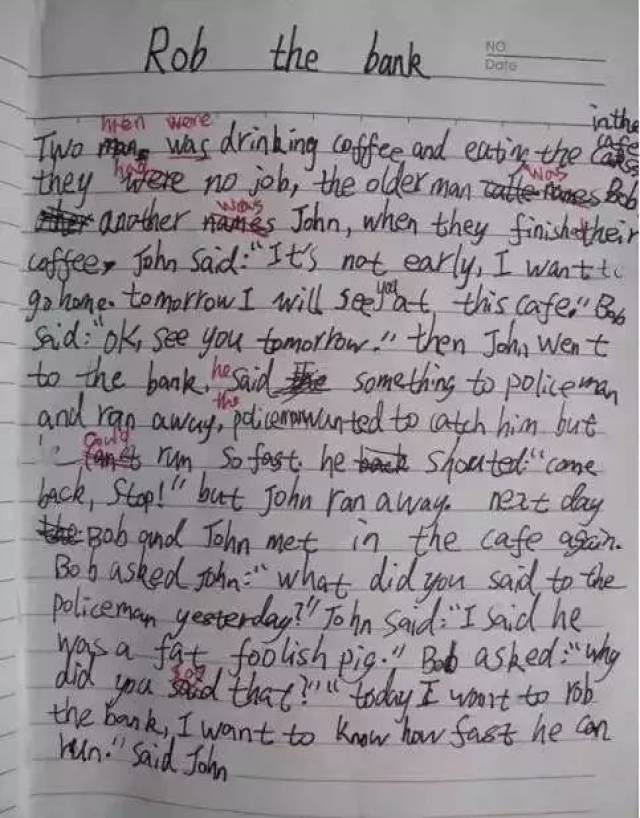 Rob the bank
NO.
Date
in the
men were
Two man was drinking coffee and eating the cafe
had was
they were no job, the older man names Bob
was
another names John, when they finished their
coffee, John said:"It's not early, I want to
you
go home. tomorrow I will see at this cafe." Bob
said:"OK, see you tomorrow." then John went
he
to the bank. said the something to policeman
the
and ran away, policeman wanted to catch him but
could
run so fast. he back shouted:"come
back, stop!" but John ran away. next day
the Bob and John met in the cafe again.
Bob asked John:"what did you said to the
policeman yesterday?" John said:"I said he
was a fat foolish pig." Bob asked:"why
say
did you said that?" "today I want to rob
the bank, I want to know how fast he can
run." said John